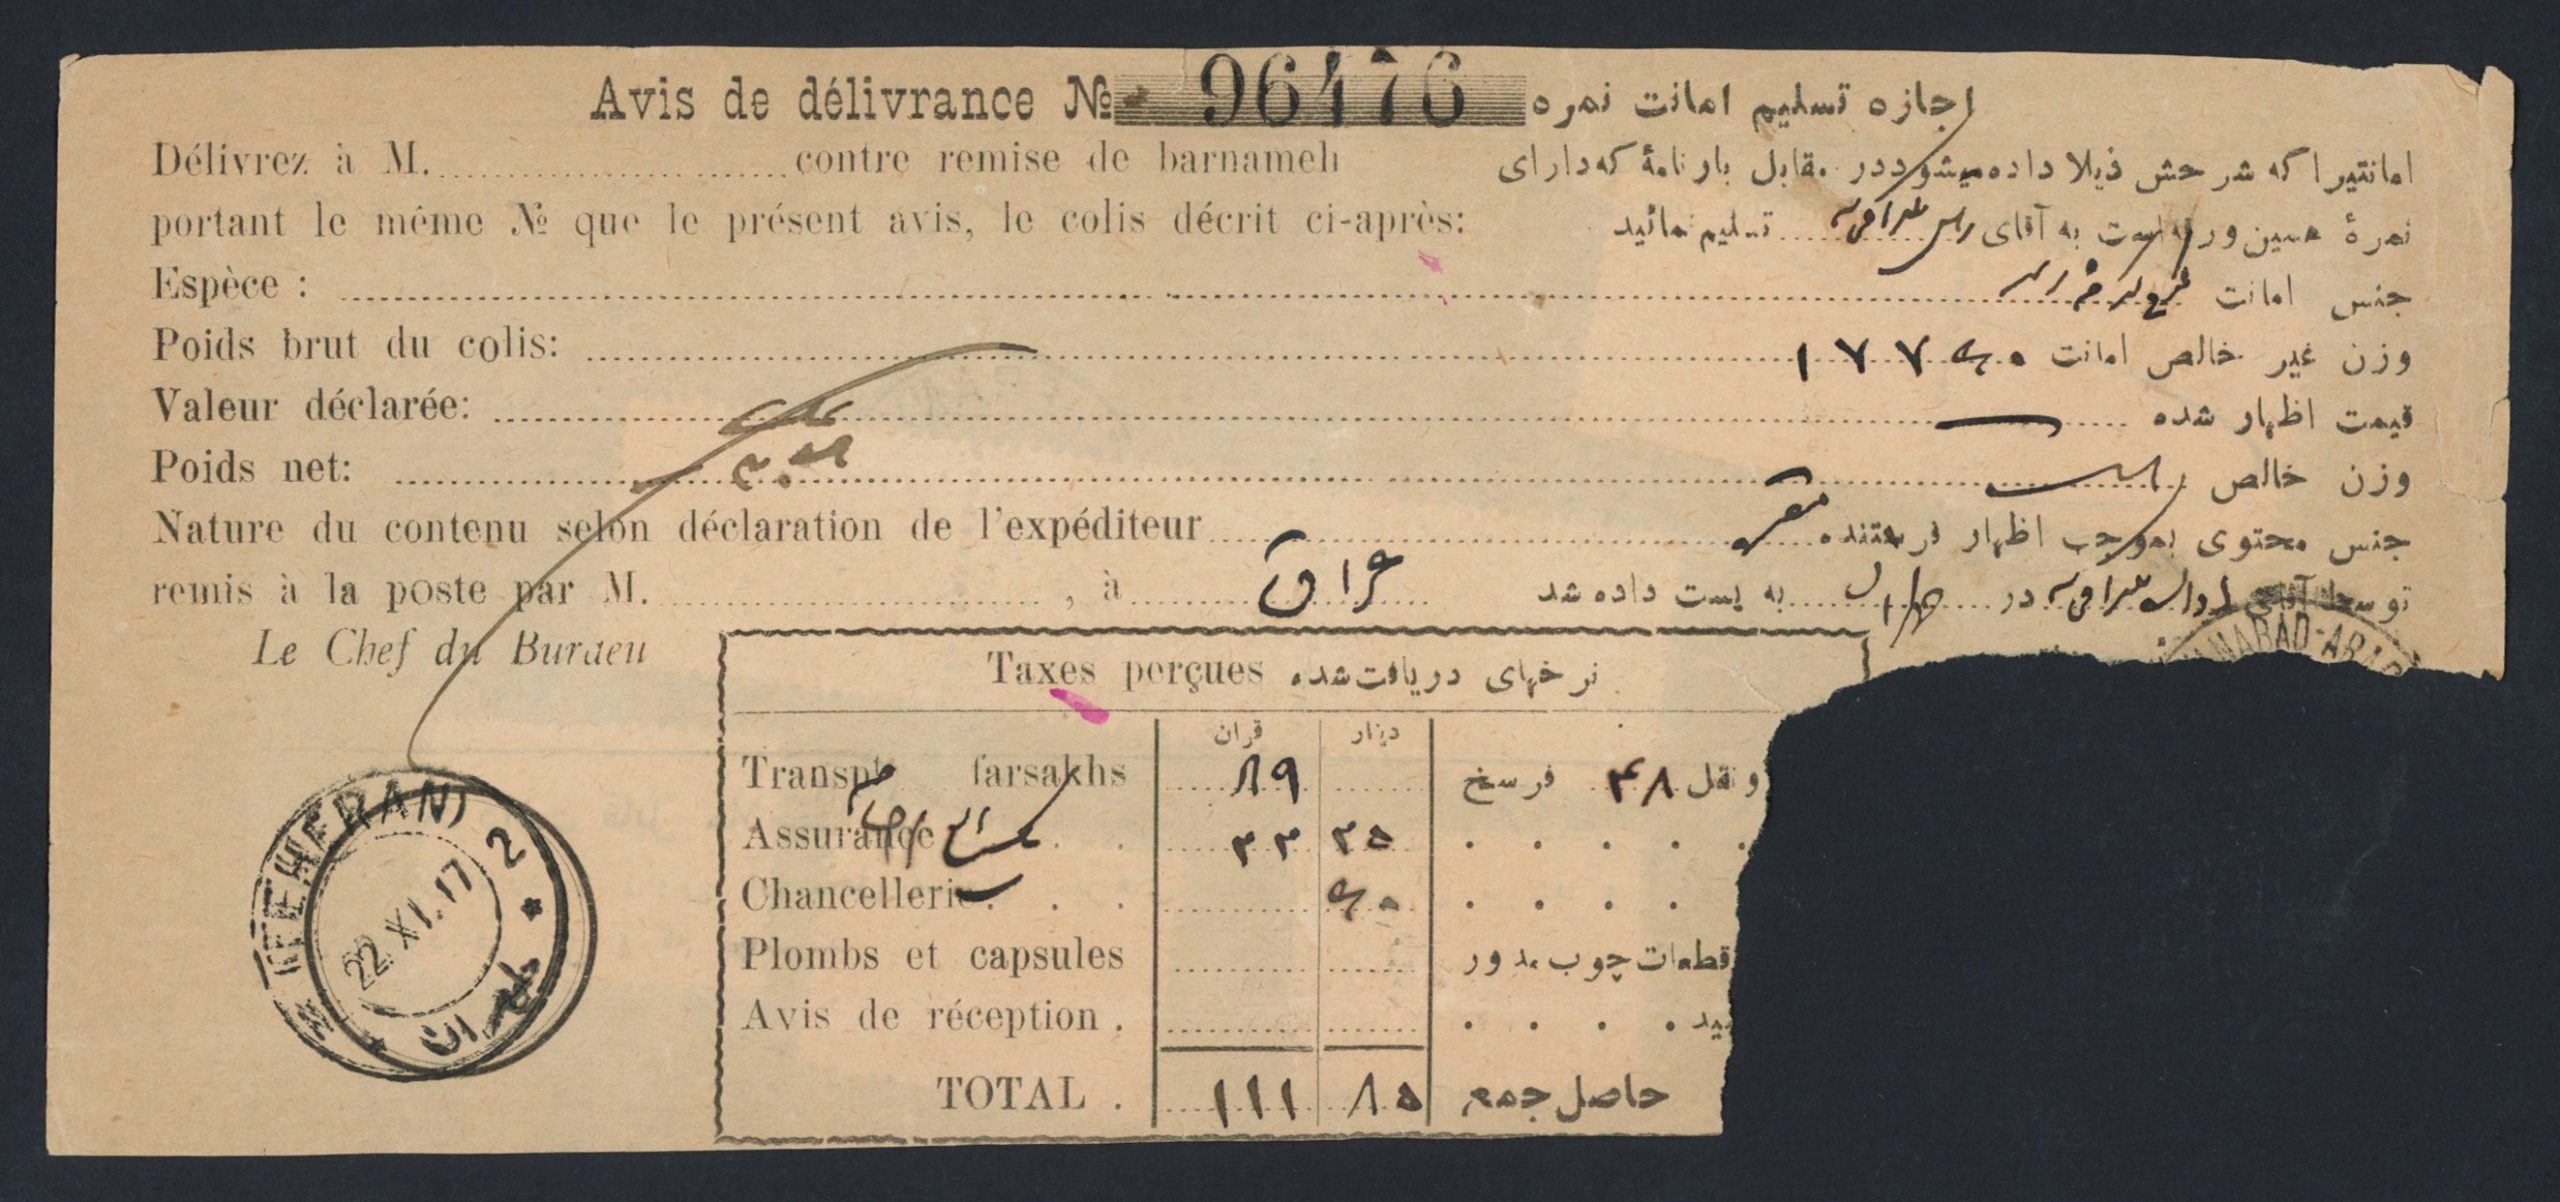 Avis de délivrance № 96476 اجازه تسلیم امانت نمره
Délivrez à M. contre remise de barnameh
امانتیرا که شرحش ذیلا داده میشود در مقابل بارنامهٔ که دارای
portant le même № que le présent avis, le colis décrit ci-après:
نمرهٔ همین ورقه است به آقای تسلیم نمائید
Espèce : جنس امانت
Poids brut du colis: وزن غیر خالص امانت ۱۷۷۴۰
Valeur déclarée: قیمت اظهار شده
Poids net: وزن خالص
Nature du contenu selon déclaration de l'expéditeur جنس محتوی بموجب اظهار فرستنده
remis à la poste par M. , à عراق
توسط آقای در به پست داده شد
Le Chef du Buraeu
Taxes perçues نرخهای دریافت شده
قران دینار
Transpt farsakhs ۸۹ و نقل ۴۸ فرسخ
Assurance . . ۲۲ ۳۵
Chancellerie . . . ۴۰
Plombs et capsules قطعات چوب مدور
Avis de réception .
TOTAL . ۱۱۱ ۸۵ حاصل جمع
TEHERAN 2
22.XI.17
طهران